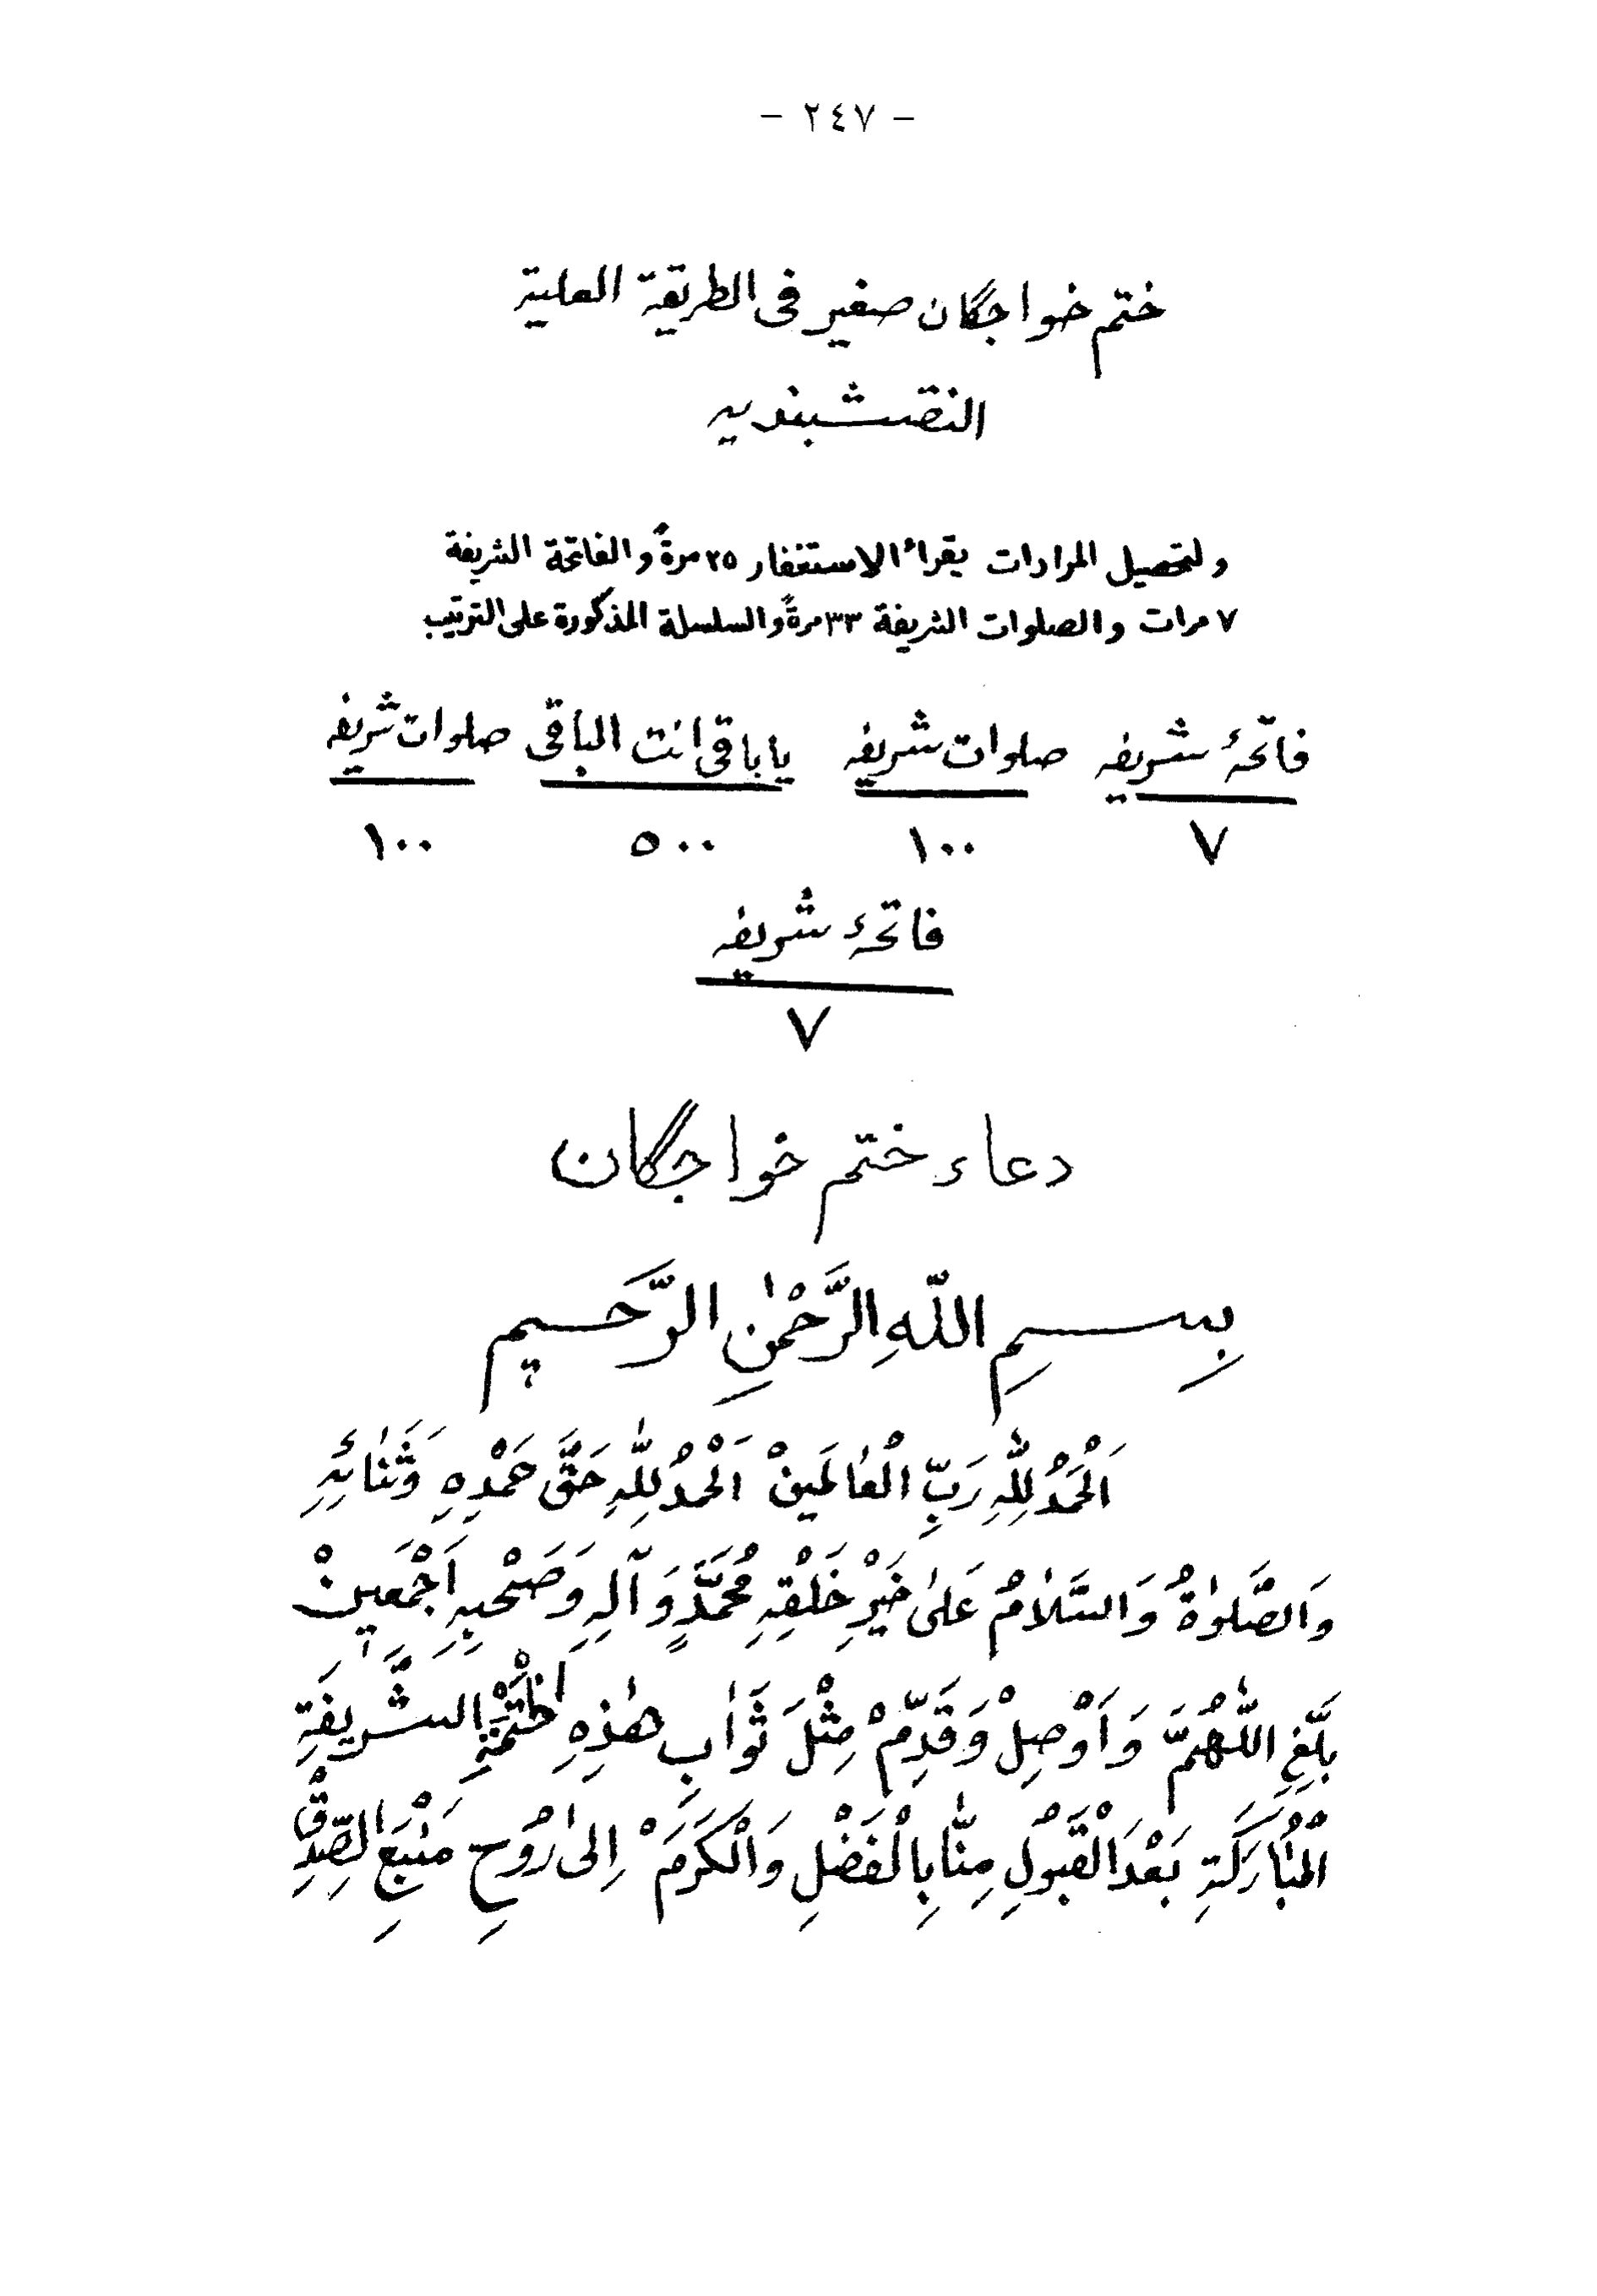 - ٢٤٧ -
ختم خواجگان صغير فى الطريقة العلية
النقشبنديه
ولتحصيل المرادات يقراء الاستغفار ٢٥ مرةً والفاتحة الشريفة
٧ مرات والصلوات الشريفة ٣٣ مرةً والسلسلة المذكورة على الترتيب
فاتّحۀ شريفه صلوات شريفه ياباقى انت الباقى صلوات شريفه
٧ ١٠٠ ٥٠٠ ١٠٠
فاتحۀ شريفه
٧
دعاء ختم خواجگان
بِسمِ اللّهِ الرَّحْمٰنِ الرَّحيم
اَلْحَمْدُ لِلّٰهِ رَبِّ الْعٰالَمينْ اَلْحَمْدُ لِلّٰهِ حَقَّ حَمْدِهِ وَثَنٰائِهِ
وَالصَّلوٰةُ وَالسَّلاٰمُ عَلىٰ خَيْرِ خَلْقِهِ مُحَمَّدٍ وَآلِهِ وَصَحْبِهِ اَجْمَعينْ
بَلِّغِ اللّٰهُمَّ وَاَوْصِلْ وَقَدِّمْ مِثْلَ ثَوٰابِ هٰذِهِ الْخَتْمَةِ الشَّريفَةِ
الْمُبٰارَكَةِ بَعْدَ الْقَبُولِ مِنّٰا بِالْفَضْلِ وَالْكَرَمْ اِلىٰ رُوُحِ مَنْبَعِ الصِّدْقِ